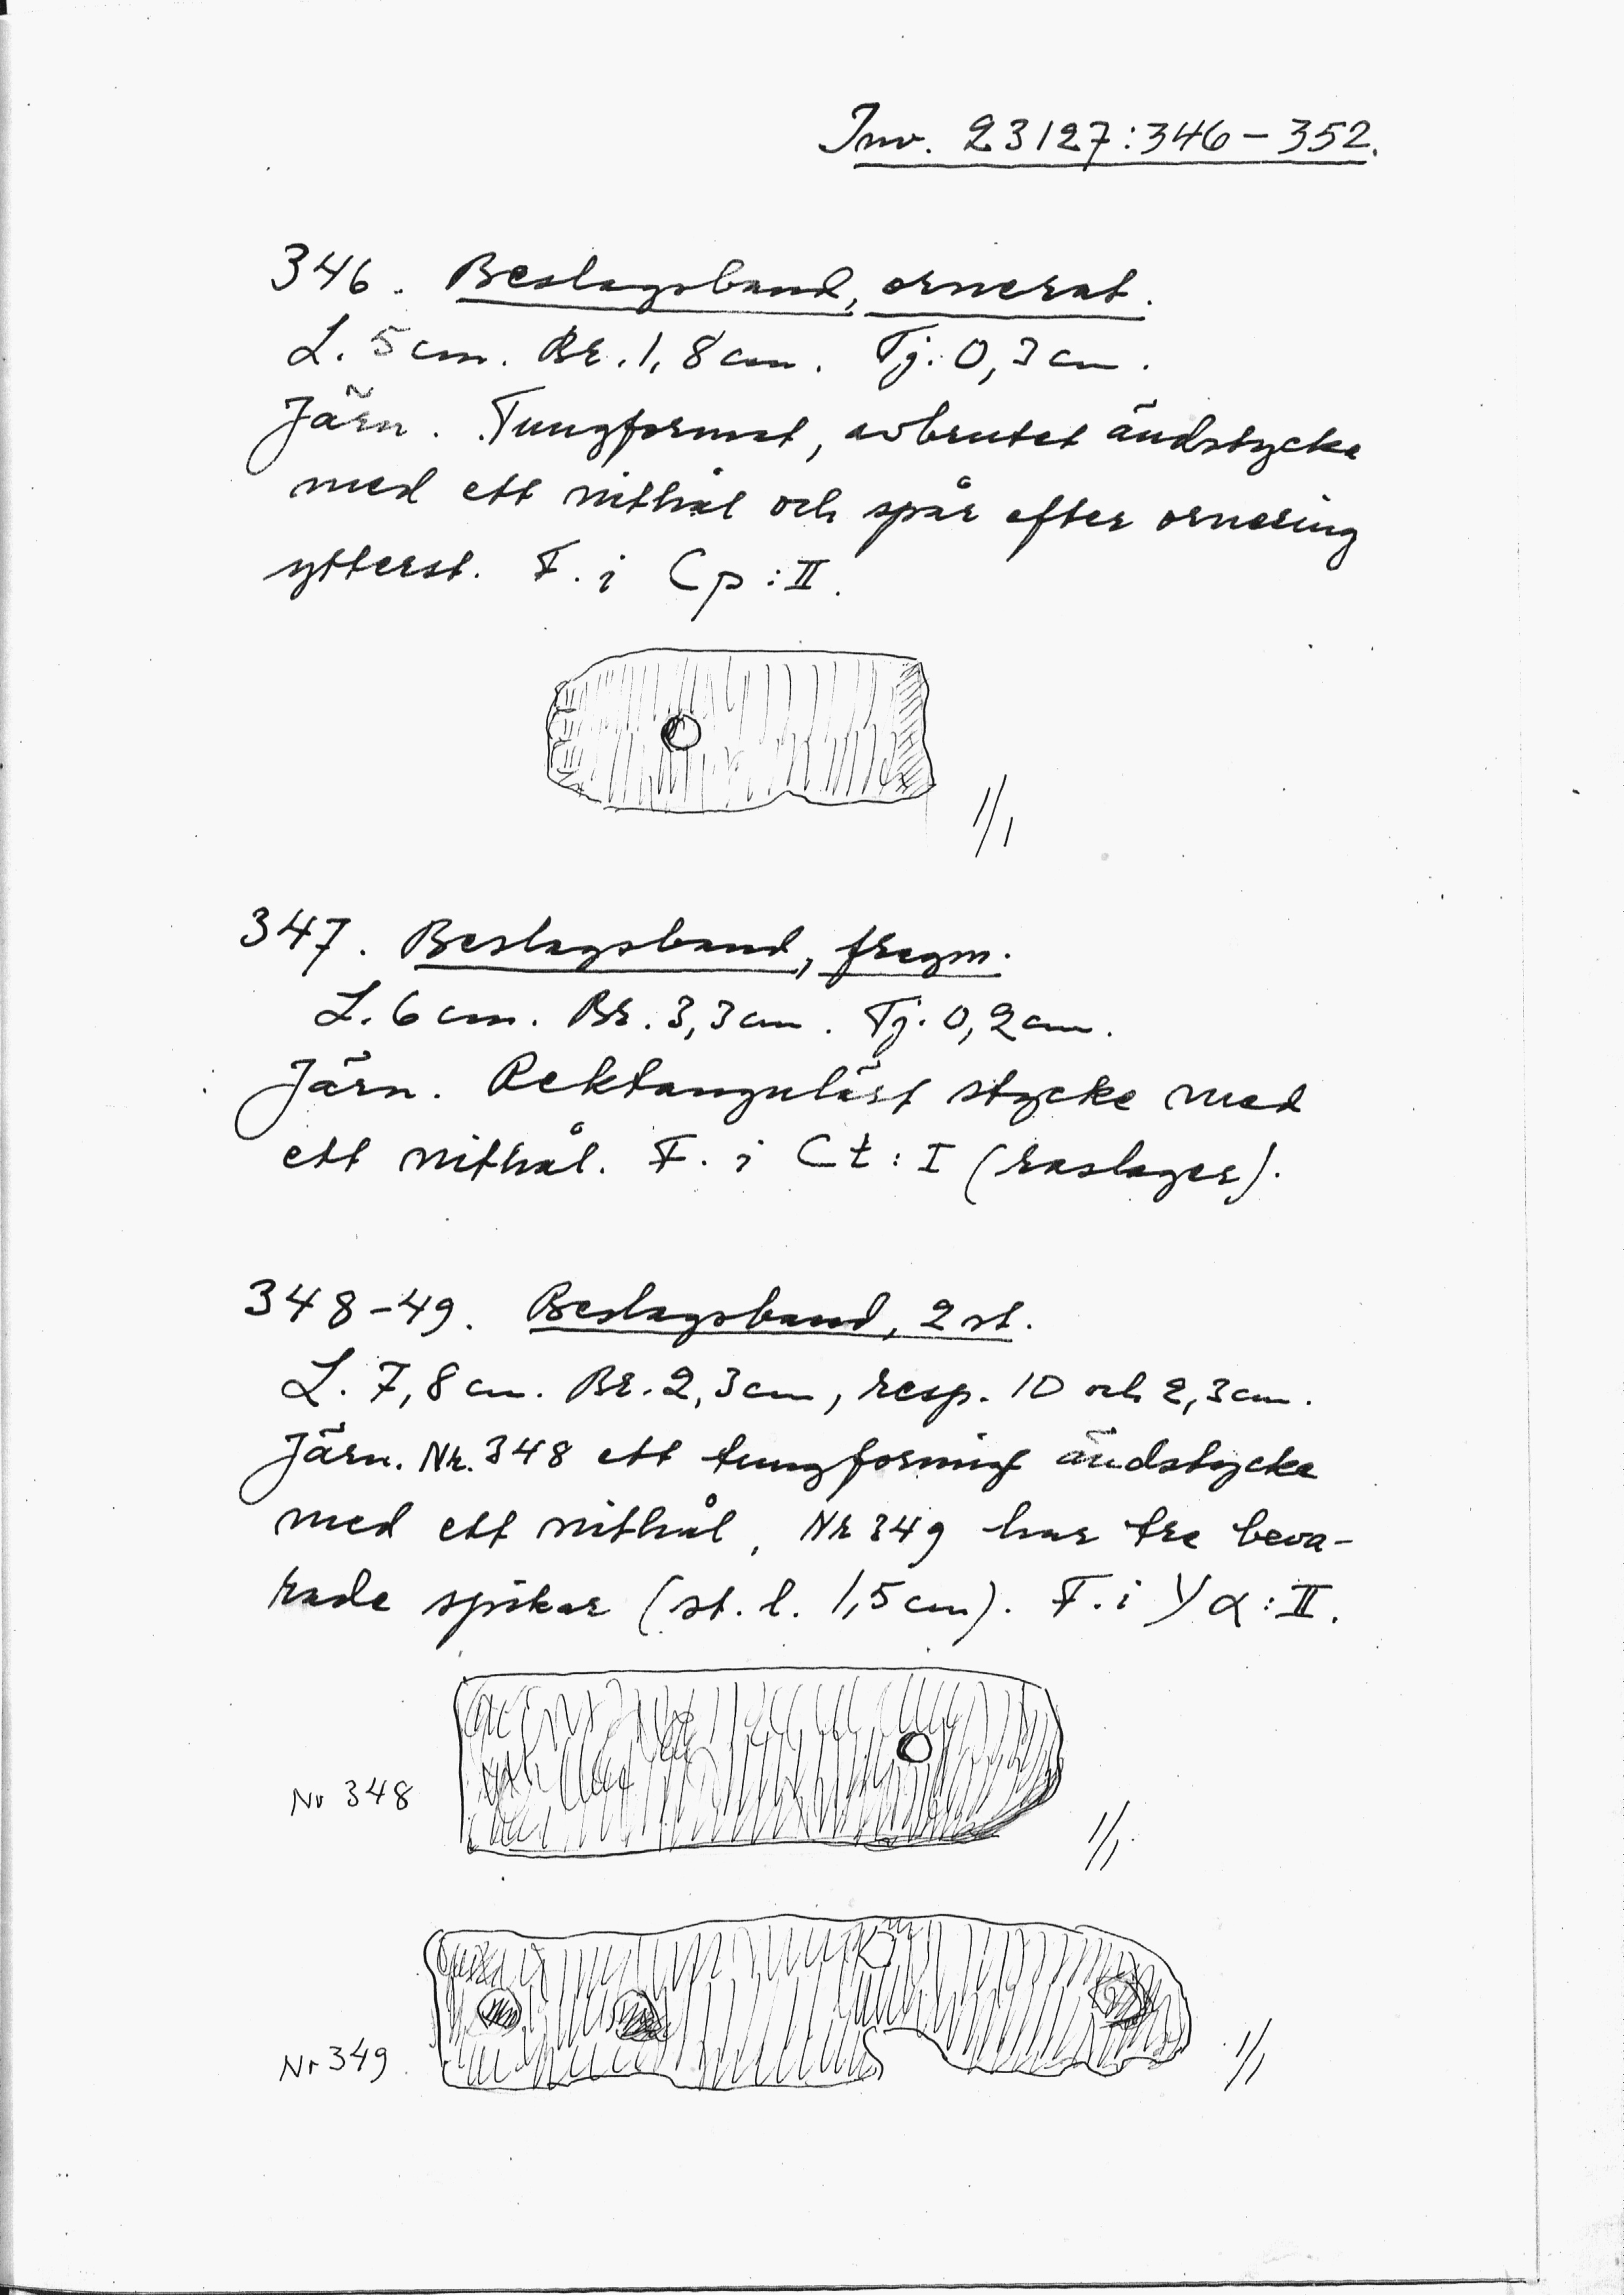 Inv. 23127:346-352.
346. Beslagsband, ornerat.
L. 5 cm. Br. 1,8 cm. Tj. 0,3 cm.
Järn. Tungformat, avbrutet ändstycke
med ett nithål och spår efter ornering
ytterst. F. i Cp:II.
1/1
347. Beslagsband, fragm.
L. 6 cm. Br. 3,3 cm. Tj. 0,2 cm.
Järn. Rektangulärt stycke med
ett nithål. F. i Ct:I (raslager).
348-49. Beslagsband, 2 st.
L. 7,8 cm. Br. 2,3 cm, resp. 10 och 2,3 cm.
Järn. Nr. 348 ett tungformigt ändstycke
med ett nithål, Nr 349 har tre beva-
rade spikar (st. l. 1,5 cm). F. i Yα:II.
Nr 348
1/1
Nr 349
1/1